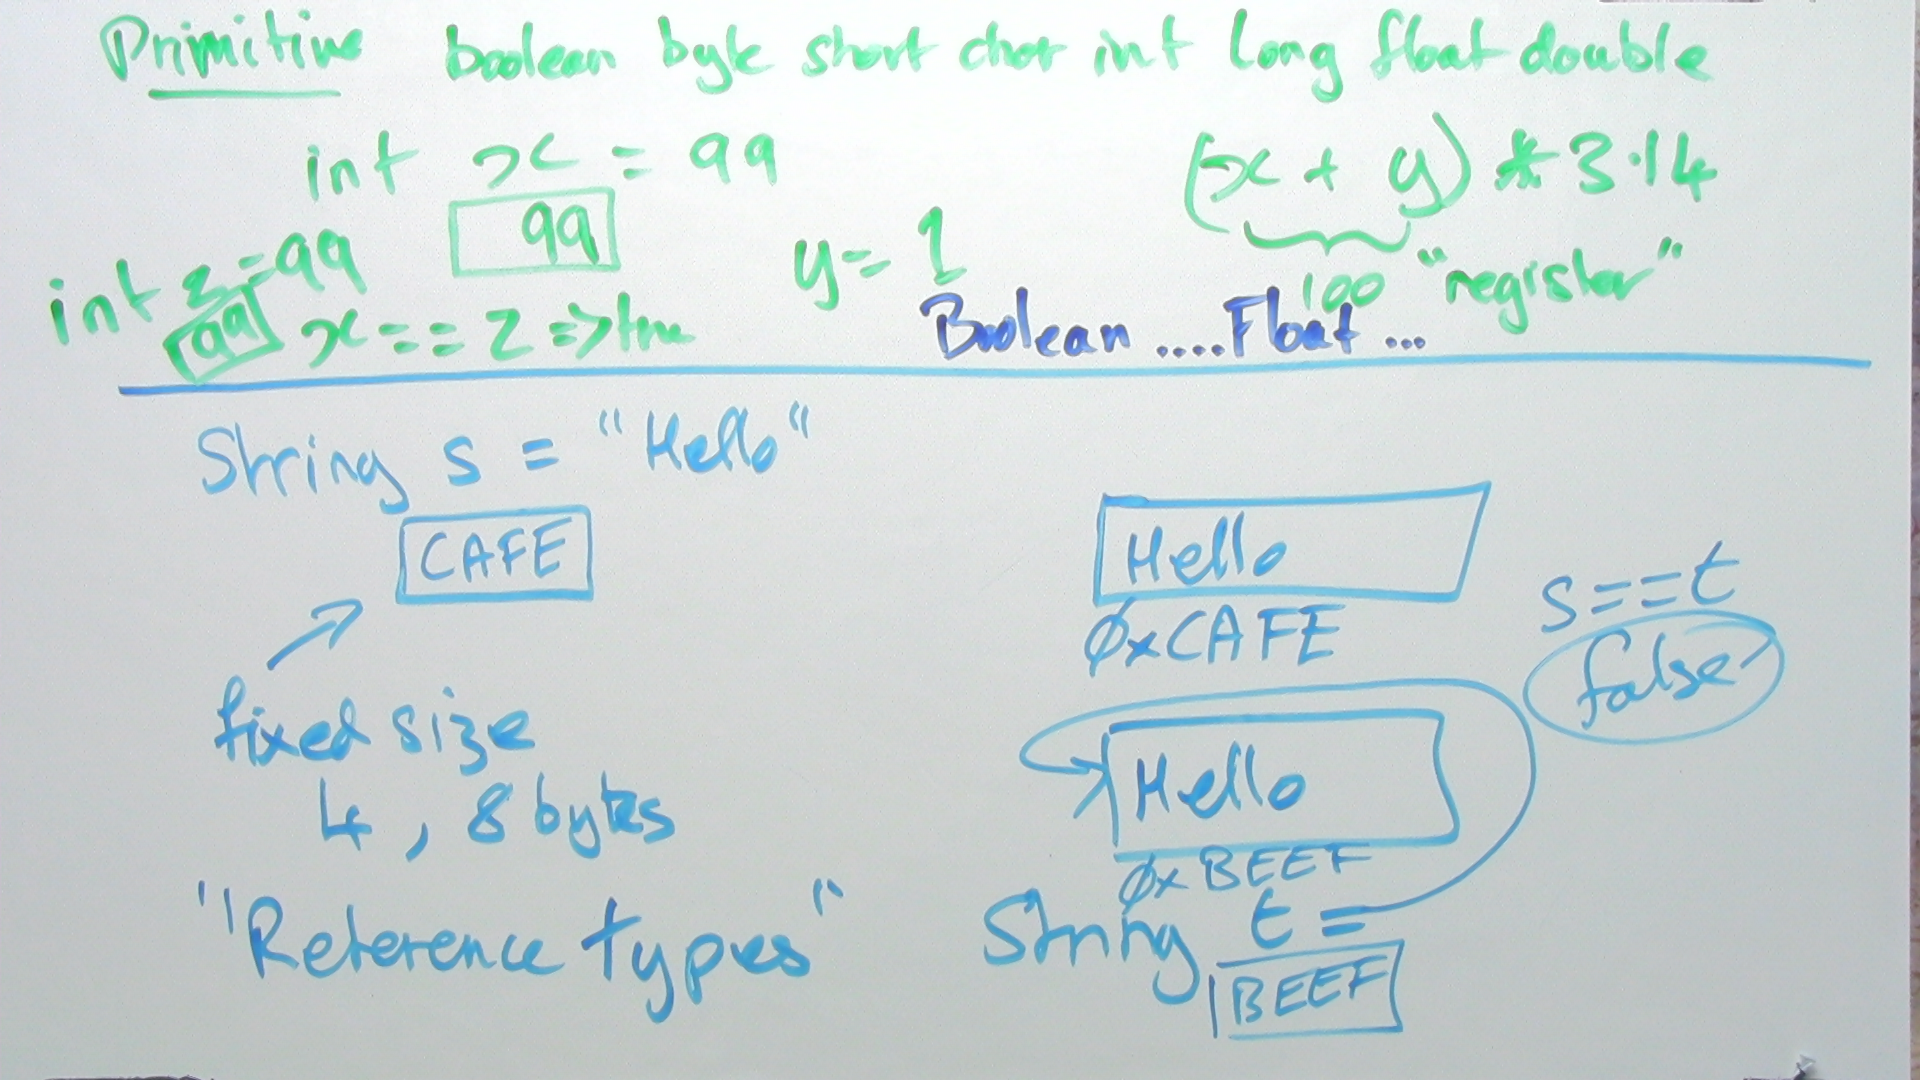 Primitive boolean byte short char int long float double
int x = 99
99
(x + y) * 3.14
100 "register"
y = 1
int z = 99
99
x == z => true
Boolean ..... Float ...
String s = "Hello"
CAFE
fixed size
4, 8 bytes
"Reference types"
Hello
0xCAFE
s==t
false
Hello
0xBEEF
String t =
BEEF